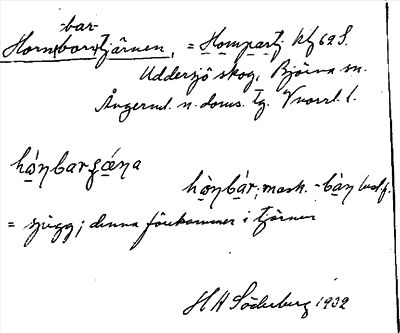 -bar-
Horn(born)tjärnen, = Hompartj. kbl 62 S.
Uddersjö skog, Björna sn.
Ångerml. n. doms. tg. Vnorrl. l.
hǫ̀ṇbargǽṇa
hǫ̀ṇbár, mask. -bàṇ best. f.
= sjugg; denna förekommer i tjärnen
H H Söderberg 1932